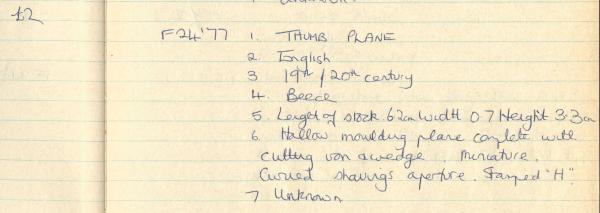 £2
F24'77 1. THUMB PLANE
2. English
3 19th / 20th century
4. Beece
5. Lenght of stock 6.2cm Width 0.7 Height 3.3cm
6. Hollow moulding plane complete with
cutting iron & wedge. Miniature.
Curved shavings aperture. Stamped "H".
7 Unknown